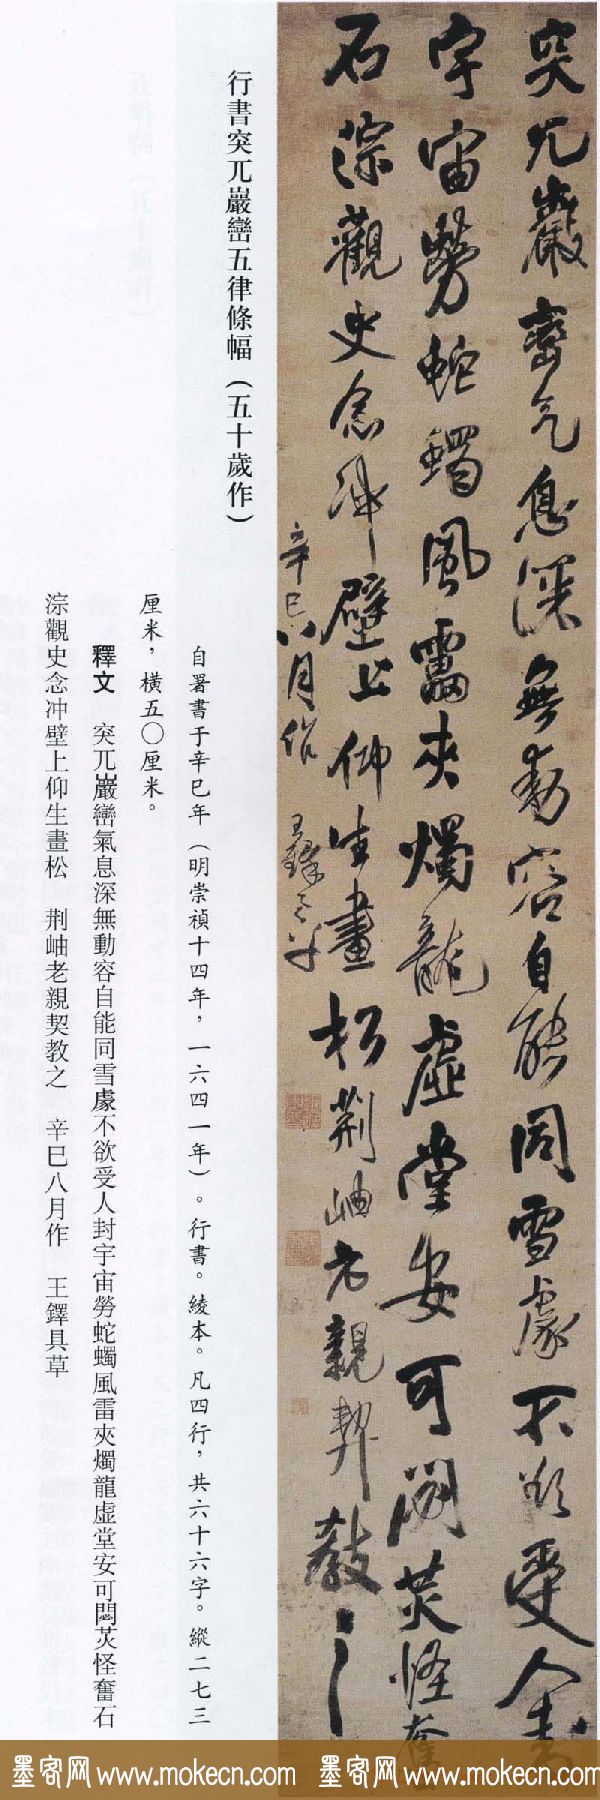 突兀巖巒氣息深無動容自能同雪慮不欲受人封
宇宙勞蛇蠋風雷夾燭龍虛堂安可閟芡怪奮
石淙觀史念冲壁上仰生畫松荆岫老親契教之
辛巳八月作 王鐸具草
行書突兀巖巒五律條幅（五十歲作）
自署書于辛巳年（明崇禎十四年，一六四一年）。行書。綾本。凡四行，共六十六字。縱二七三
厘米，橫五〇厘米。
釋文 突兀巖巒氣息深無動容自能同雪慮不欲受人封宇宙勞蛇蠋風雷夾燭龍虛堂安可閟芡怪奮石
淙觀史念冲壁上仰生畫松 荆岫老親契教之 辛巳八月作 王鐸具草
墨客网 www.mokecn.com 墨客网 www.mokecn.com